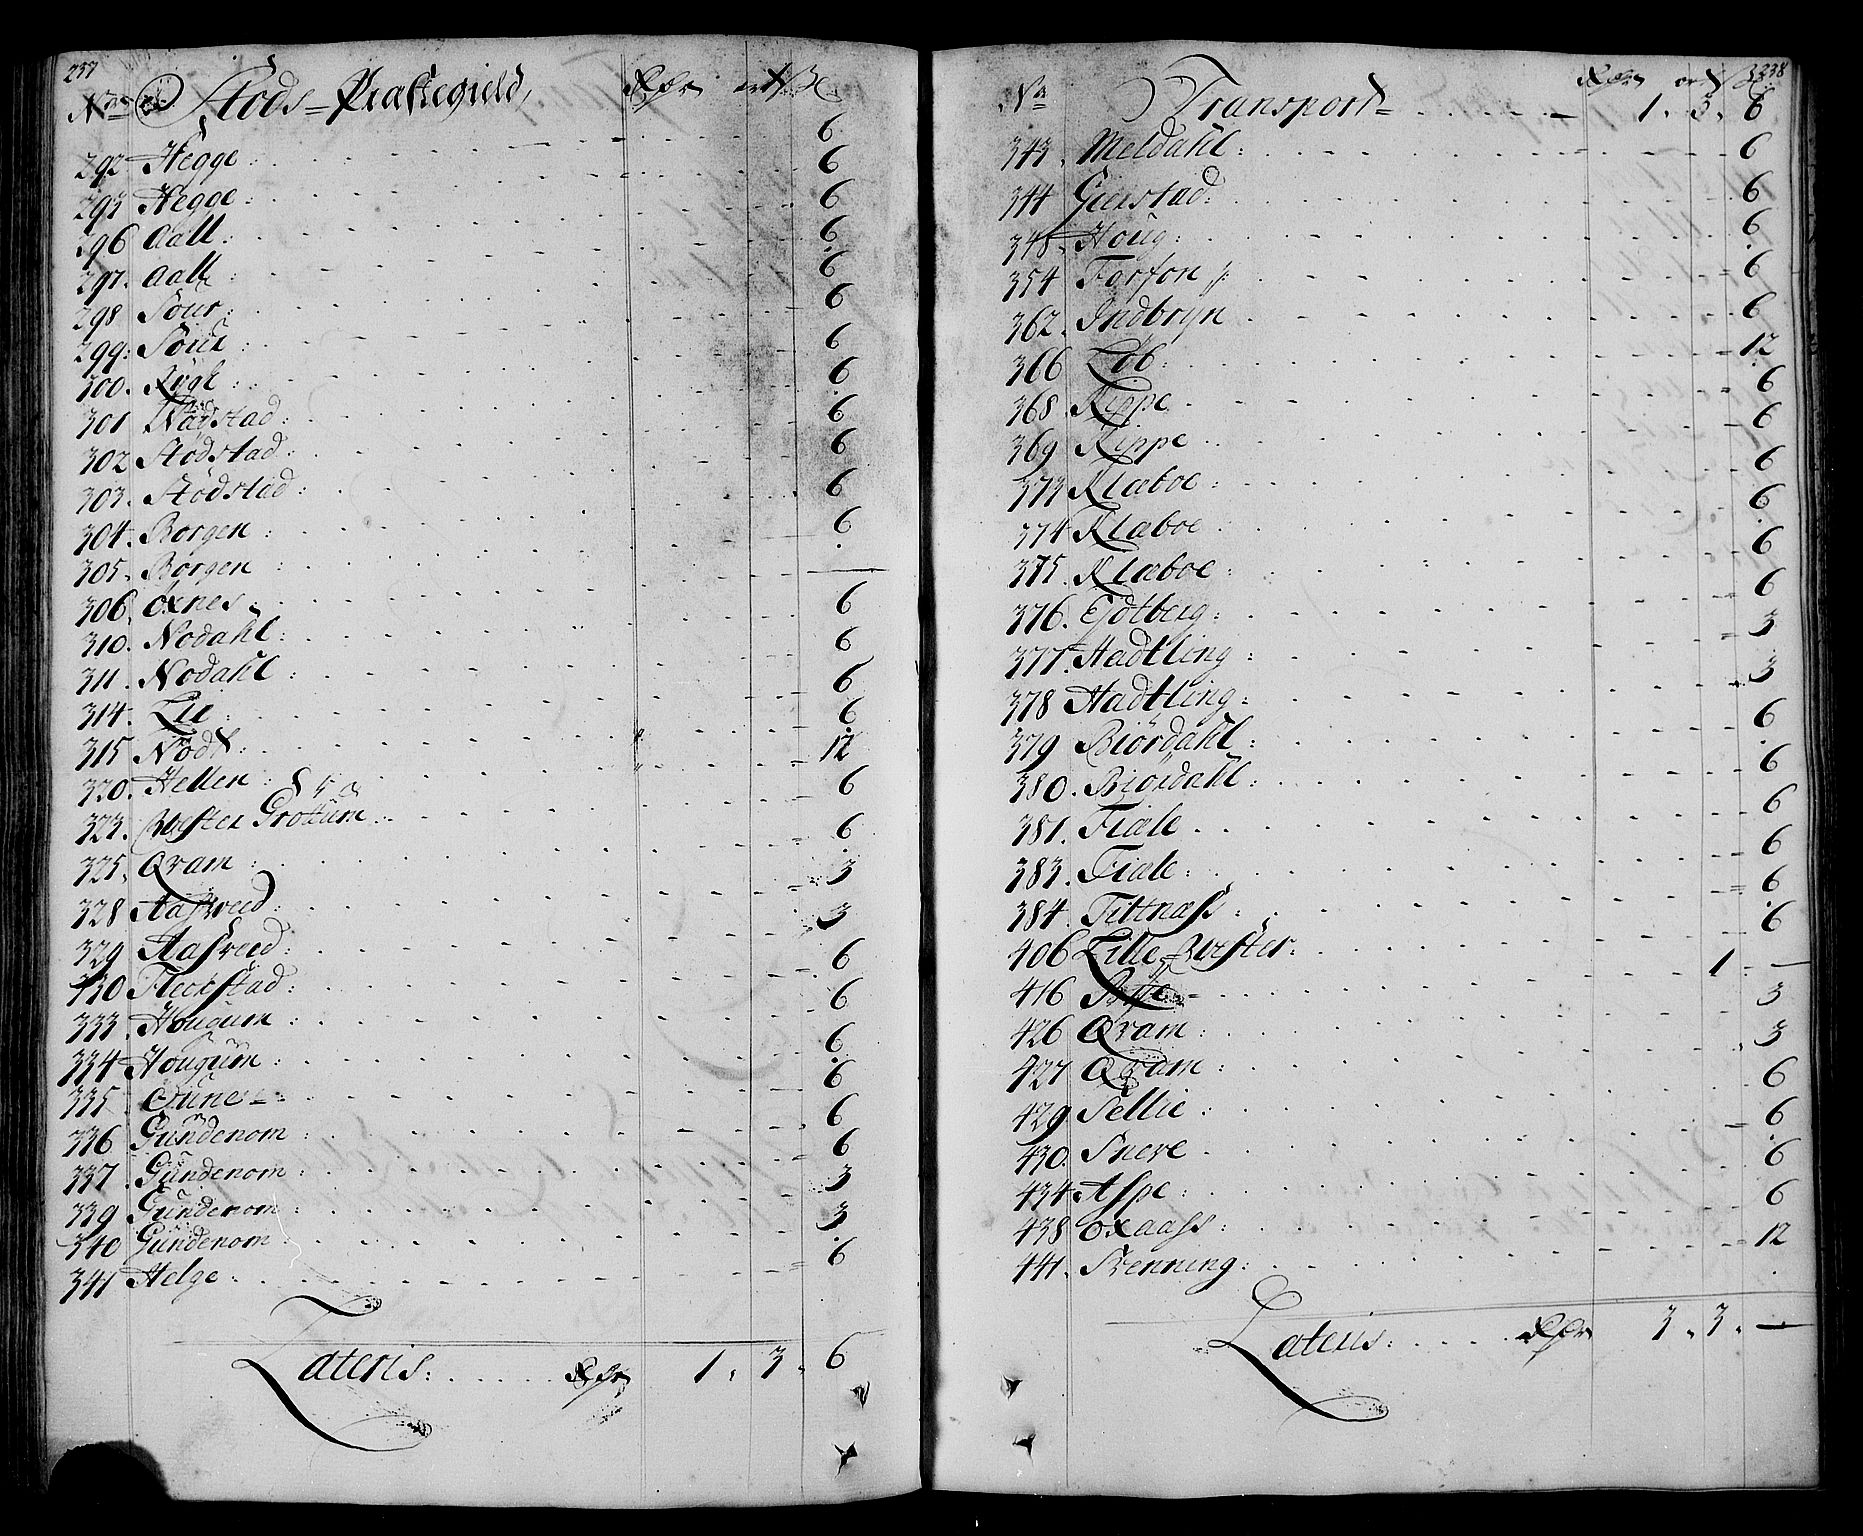 237
No Stods = Præstegield, Rdr ort ß
292 Hegge : 6
293 Hegge : 6
296 Aall : 6
297. Aall : 6
298 Sour : 6
299: Sour : 6
300. Røgl : 6
301 Nadstad : 6
302 Stodstad : 6
303. Stodstad : 6
304. Borgen : 6
305. Borgen : 6
306. Oxnes : —
310. Nodahl : 6
311. Nodahl : 6
314. Lie : 6
315 Nøst : 6
320. Hellem : 12
323. Wester Grottum 6
325. Qvam : 6
328 Aasveed : 3
329 Aasveed : 3
330 Fleckstad : 6
333. Hougum : 6
334 Hougum : 6
335 Oune = 6
336 Gundenom : 6
337. Gundenom : 6
339 Gundenom : 3
340 Gundenom : 3
341 Helge : 6
Lateris : Rdr 1. 3. 6
238
No Rdr ort ß
Transport = 1. 3. 6
343. Meldahl : 6
344 Geistad : 6
348. Houg : 6
354 Forfon 6
362. Indbryn 6
366 Løb : 12
368. Kippe 6
369 Kippe 6
373 Klæboe : 6
374 Klæboe 6
375. Klæboe : 6
376. Ejdtberg : 6
377. Hadtling : 3
378 Hadtling : 3
379 Biørdahl : 6
380. Biørdahl : 6
381. Fiale 6
383. Fiale : 6
384. Tittnæss : 6
406 Lille Wester : 6
416 Bye = 1 —
426 Qvam : 3
427 Qvam : 3
429 Sellie : 6
430. Snere 6
434. Aspe : 6
438 Oxaass : 6
441. Brenning : 12
Lateris : Rdr 3. 3. —